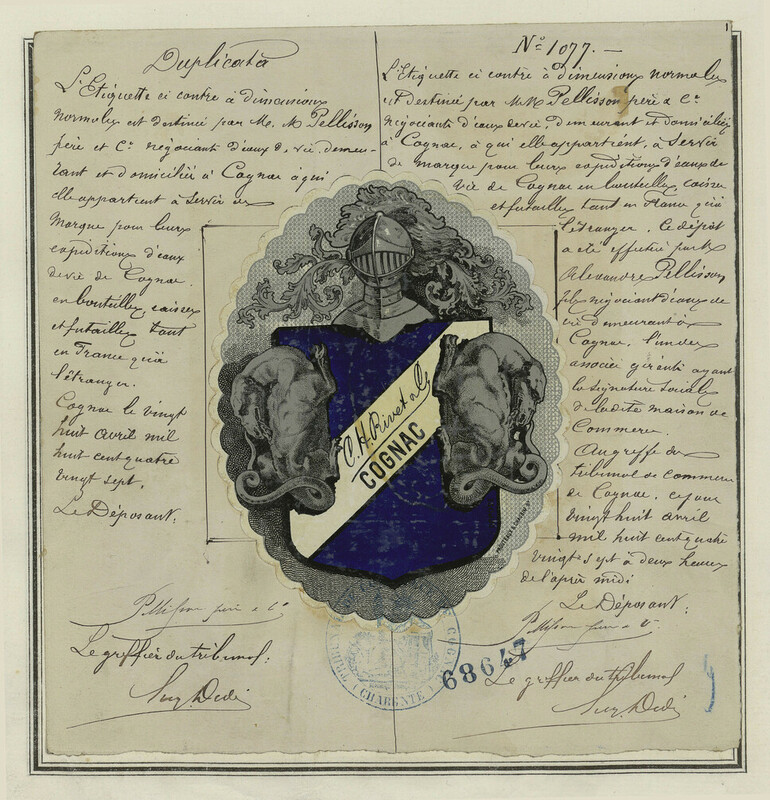 Duplicata
L'Etiquette ci contre à dimensions
normales est destinée par Mr. M Pellisson
père et Cie négociants d'eaux de vie demeu-
rant et domiciliés à Cognac à qui
elle appartient à servir de
marque pour leurs
expéditions d'eaux
de vie de Cognac
en bouteilles, caisses
et futailles tant
en France qu'à
l'étranger.
Cognac le vingt
huit avril mil
huit cent quatre
vingt sept.
Le Déposant:
Pellisson père & Cie
Le greffier du tribunal:
No 1077. —
L'Etiquette ci contre à dimensions normales
est destinée par MM Pellisson père & Cie
négociants d'eaux de vie, demeurant et domiciliés
à Cognac, à qui elle appartient, à servir
de marque pour leurs expéditions d'eaux de
vie de Cognac en bouteilles, caisses
et futailles tant en France qu'à
l'étranger. Ce dépôt
a été effectué par Mr
Alexandre Pellisson
fils négociant d'eaux de
vie demeurant à
Cognac, l'un des
associés gérants ayant
la signature sociale
de ladite maison de
Commerce.
Au greffe du
tribunal de commerce
de Cognac, ce jour
vingt huit avril
mil huit cent quatre
vingt sept à deux heures
de l'après midi
Le Déposant:
Pellisson père & Cie
Le greffier du tribunal
C. H. Rivet & Co
COGNAC
TRIBUNAL
COGNAC
(CHARENTE)
68647
1